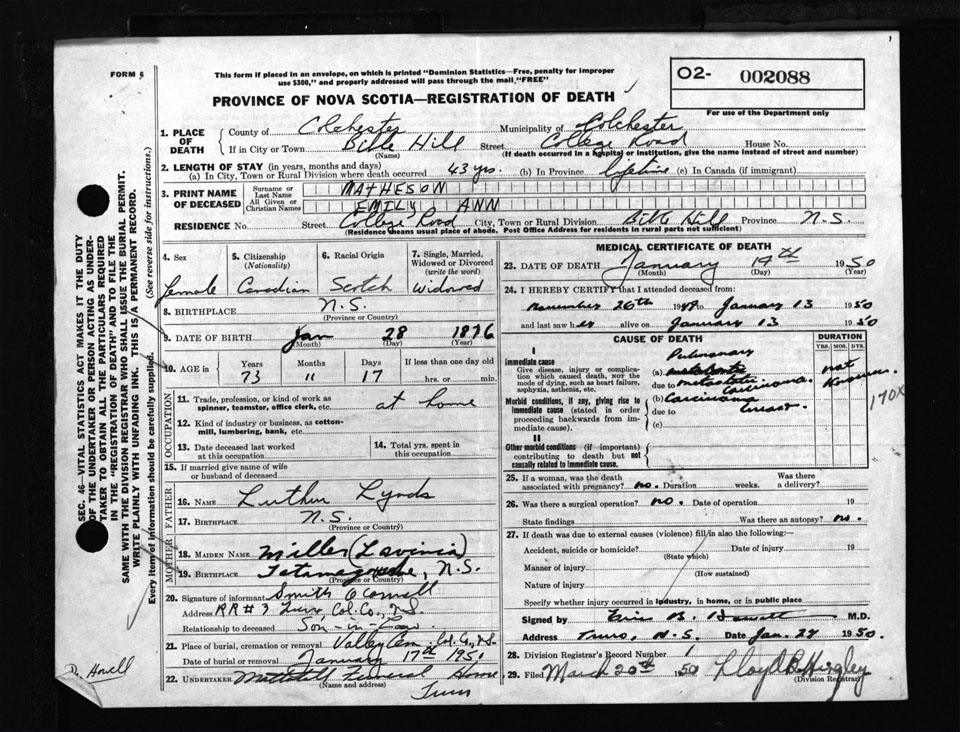 FORM 6
This form if placed in an envelope, on which is printed "Dominion Statistics—Free, penalty for improper
use $300," and properly addressed will pass through the mail "FREE"
PROVINCE OF NOVA SCOTIA—REGISTRATION OF DEATH
O2- 002088
For use of the Department only
1. PLACE OF DEATH
County of Colchester Municipality of Colchester
If in City or Town Bible Hill Street College Road House No.
(Name) (If death occurred in a hospital or institution, give the name instead of street and number)
2. LENGTH OF STAY (in years, months and days)
(a) In City, Town or Rural Division where death occurred 43 yrs. (b) In Province lifetime (c) In Canada (if immigrant)
3. PRINT NAME OF DECEASED
Surname or Last Name MATHESON
All Given or Christian Names EMILY ANN
RESIDENCE No. Street College Road City, Town or Rural Division Bible Hill Province N.S.
(Residence means usual place of abode. Post Office Address for residents in rural parts not sufficient)
4. Sex female
5. Citizenship (Nationality) Canadian
6. Racial Origin Scotch
7. Single, Married, Widowed or Divorced (write the word) Widowed
8. BIRTHPLACE N.S.
(Province or Country)
9. DATE OF BIRTH Jan 28 1876
(Month) (Day) (Year)
10. AGE in Years Months Days If less than one day old
73 11 17 hrs. or min.
OCCUPATION
11. Trade, profession, or kind of work as
spinner, teamster, office clerk, etc. at home
12. Kind of industry or business, as cotton-
mill, lumbering, bank, etc.
13. Date deceased last worked
at this occupation
14. Total yrs. spent in
this occupation
15. If married give name of wife
or husband of deceased
FATHER
16. NAME Luther Lynds
17. BIRTHPLACE N.S.
(Province or Country)
MOTHER
18. MAIDEN NAME Miller (Lavinia)
19. BIRTHPLACE Tatamagouche, N.S.
(Province or Country)
20. Signature of informant Smith O'Connell
Address RR#3 Truro Col. Co., N.S.
Relationship to deceased Son-in-Law
21. Place of burial, cremation or removal Valley Cem. Col. Co., N.S.
Date of burial or removal January 17th 1950
22. UNDERTAKER Funeral Home,
(Name and address) Truro
MEDICAL CERTIFICATE OF DEATH
23. DATE OF DEATH January 14th 1950
(Month) (Day) (Year)
24. I HEREBY CERTIFY that I attended deceased from:
November 26th 1949 to January 13 1950
and last saw her alive on January 13 1950
CAUSE OF DEATH DURATION
YRS. MOS. DYS.
I
Immediate cause
Give disease, injury or complica-
tion which caused death, NOR the
mode of dying, such as heart failure,
asphyxia, asthenia, etc.
Morbid conditions, if any, giving rise to
immediate cause (stated in order
proceeding backwards from im-
mediate cause).
II
Other morbid conditions (if important)
contributing to death but not
causally related to immediate cause.
Pulmonary
(a)
due to metastatic Carcinoma. not known
(b) Carcinoma
due to breast.
(c)
170X
25. If a woman, was the death Was there
associated with pregnancy? no. Duration weeks. a delivery?
26. Was there a surgical operation? no. Date of operation 19
State findings Was there an autopsy? no.
27. If death was due to external causes (violence) fill in also the following:—
Accident, suicide or homicide? Date of injury 19
(State which)
Manner of injury
(How sustained)
Nature of injury
Specify whether injury occurred in industry, in home, or in public place
Signed by Eric B. Howell M.D.
Address Truro, N.S. Date Jan. 27 1950.
28. Division Registrar's Record Number 1
29. Filed March 20th 50 Lloyd B. Higley
(Division Registrar)
SEC. 46—VITAL STATISTICS ACT MAKES IT THE DUTY
OF THE UNDERTAKER OR PERSON ACTING AS UNDER-
TAKER TO OBTAIN ALL THE PARTICULARS REQUIRED
IN THE "REGISTRATION OF DEATH" AND TO FILE THE
SAME WITH THE DIVISION REGISTRAR WHO SHALL ISSUE THE BURIAL PERMIT.
WRITE PLAINLY WITH UNFADING INK. THIS IS A PERMANENT RECORD.
Every item of information should be carefully supplied. (See reverse side for instructions.)
Dr. Howell